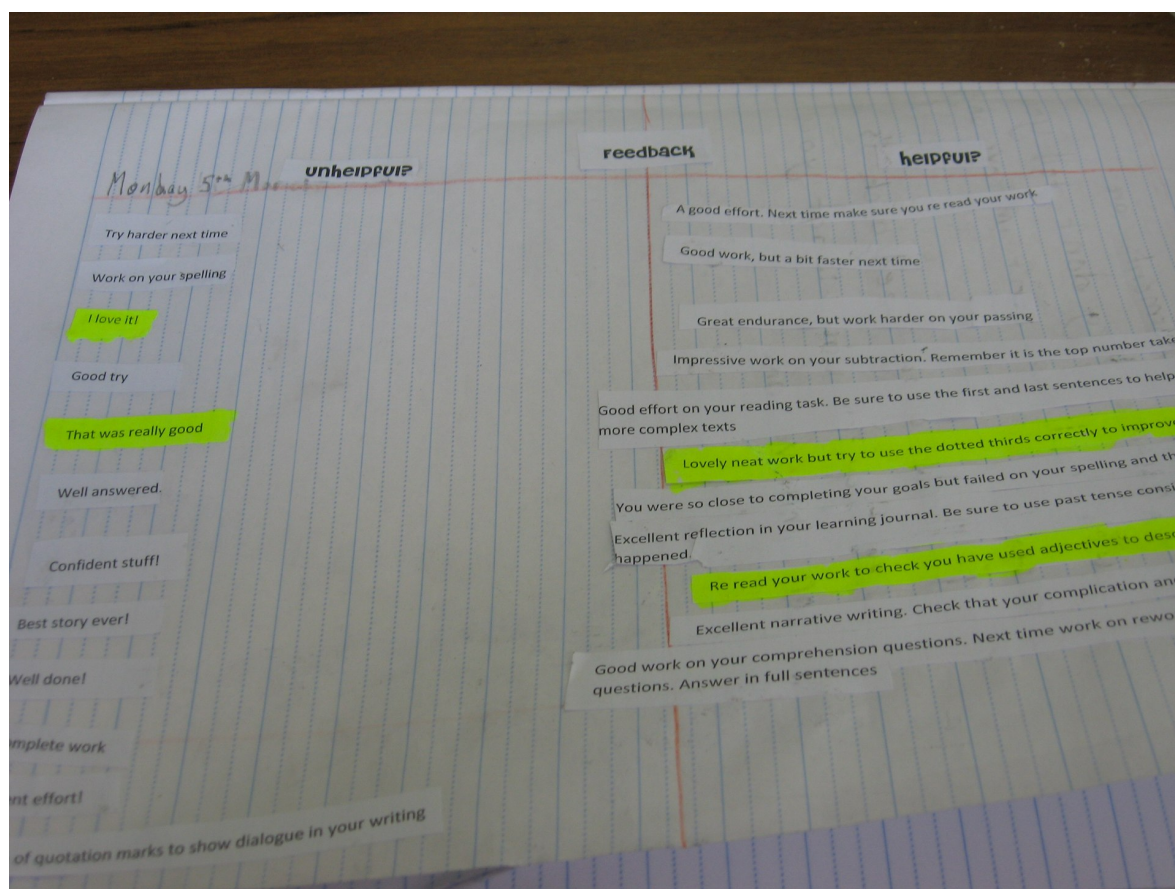 feedback
Monday 5th
unhelpful?
helpful?
Try harder next time
Work on your spelling
I love it!
Good try
That was really good
Well answered.
Confident stuff!
Best story ever!
Well done!
mplete work
nt effort!
of quotation marks to show dialogue in your writing
A good effort. Next time make sure you re read your work
Good work, but a bit faster next time
Great endurance, but work harder on your passing
Impressive work on your subtraction. Remember it is the top number take
Good effort on your reading task. Be sure to use the first and last sentences to help
more complex texts
Lovely neat work but try to use the dotted thirds correctly to improve
You were so close to completing your goals but failed on your spelling and th
Excellent reflection in your learning journal. Be sure to use past tense consi
happened.
Re read your work to check you have used adjectives to desc
Excellent narrative writing. Check that your complication an
Good work on your comprehension questions. Next time work on rewo
questions. Answer in full sentences